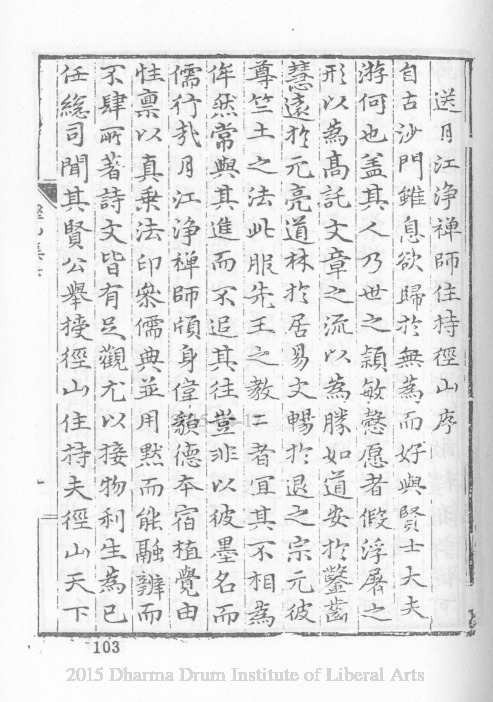 送月江浄禅師住持徑山序
自古沙門雖息欲歸於無為而好與賢士大夫
游何也盖其人乃世之穎敏慤愿者假浮屠之
形以為髙託文章之流以為勝如道安於鑿齒
慧遠於元亮道林於居易文暢於退之宗元彼
尊竺土之法此服先王之教二者冝其不相為
侔然常與其進而不追其往豈非以彼墨名而
儒行㢤月江浄禅師頎身偉貌德本宿植覺由
性稟以真乗法印叅儒典並用黙而能融辯而
不肆所著詩文皆有足觀尤以接物利生為已
任緫司聞其賢公舉授徑山住持夫徑山天下
103
2015 Dharma Drum Institute of Liberal Arts